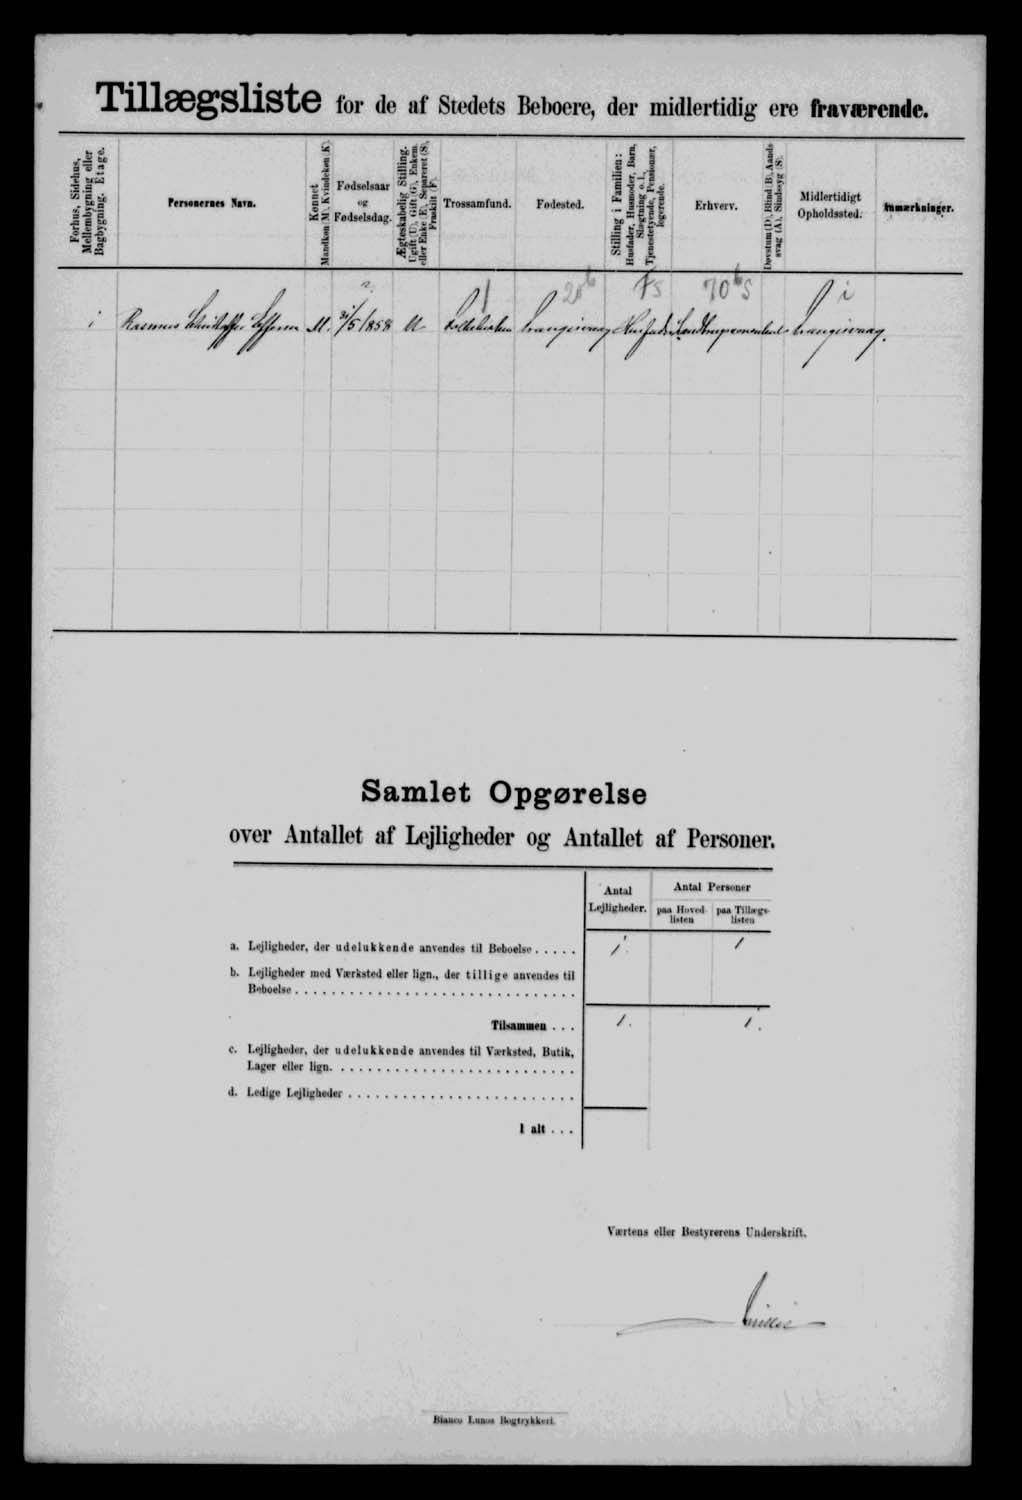 Tillægsliste for de af Stedets Beboere, der midlertidig ere fraværende.
Forhus, Sidehus, Mellembygning eller Bagbygning. Etage.
Personernes Navn.
Kønnet Mandkøn (M), Kvindekøn (K).
Fødselsaar og Fødselsdag.
Ægteskabelig Stilling. Ugift (U), Gift (G), Enkem. eller Enke (E), Separeret (S), Fraskilt (F).
Trossamfund.
Fødested.
Stilling i Familien: Husfader, Husmoder, Barn, Slægtning o. l., Tjenestetyende, Pensionær, logerende.
Erhverv.
Døvstum (D), Blind (B), Aandssvag (A), Sindssyg (S).
Midlertidigt Opholdssted.
Anmærkninger.
i Rasmus M. 31/5 1858 U. Folkekirken Trangisvaag Husfader Trangisvaag.
Samlet Opgørelse
over Antallet af Lejligheder og Antallet af Personer.
Antal Lejligheder.
Antal Personer
paa Hovedlisten
paa Tillægslisten
a. Lejligheder, der udelukkende anvendes til Beboelse ..... 1. 1
b. Lejligheder med Værksted eller lign., der tillige anvendes til
Beboelse ..............................
Tilsammen ... 1. 1.
c. Lejligheder, der udelukkende anvendes til Værksted, Butik,
Lager eller lign. ..........................
d. Ledige Lejligheder .........................
I alt ...
Værtens eller Bestyrerens Underskrift.
Bianco Lunos Bogtrykkeri.